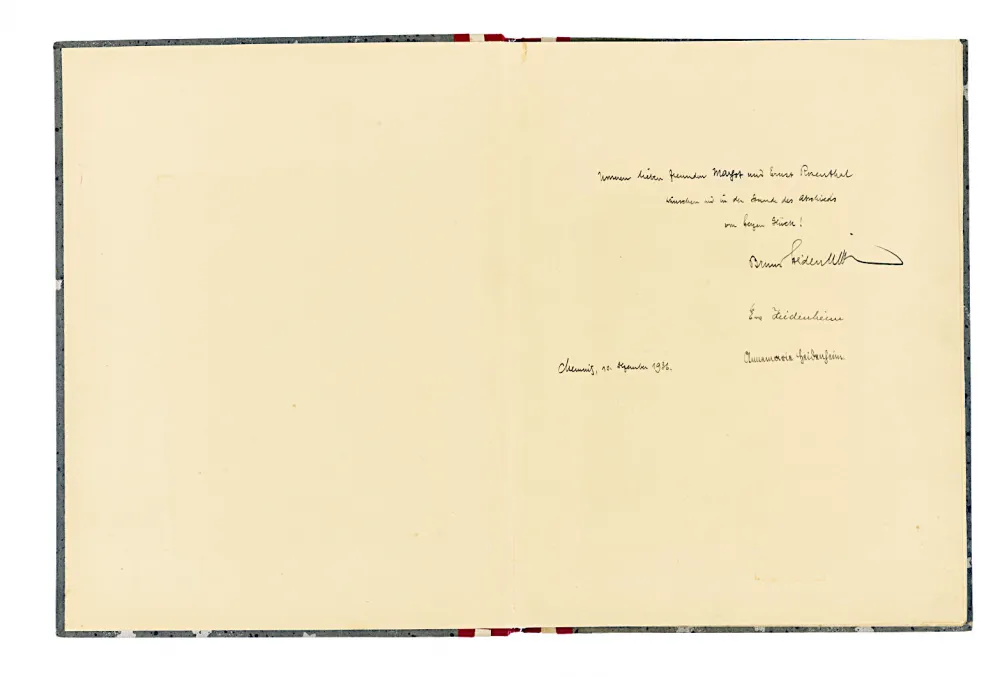 Unseren lieben Freunden Margot und Ernst Rosenthal
wünschen wir in der Stunde des Abschieds
von Herzen Glück!
Bruno Heidenheim
Eva Heidenheim
Annemarie Heidenheim
Chemnitz, 10. Dezember 1936.